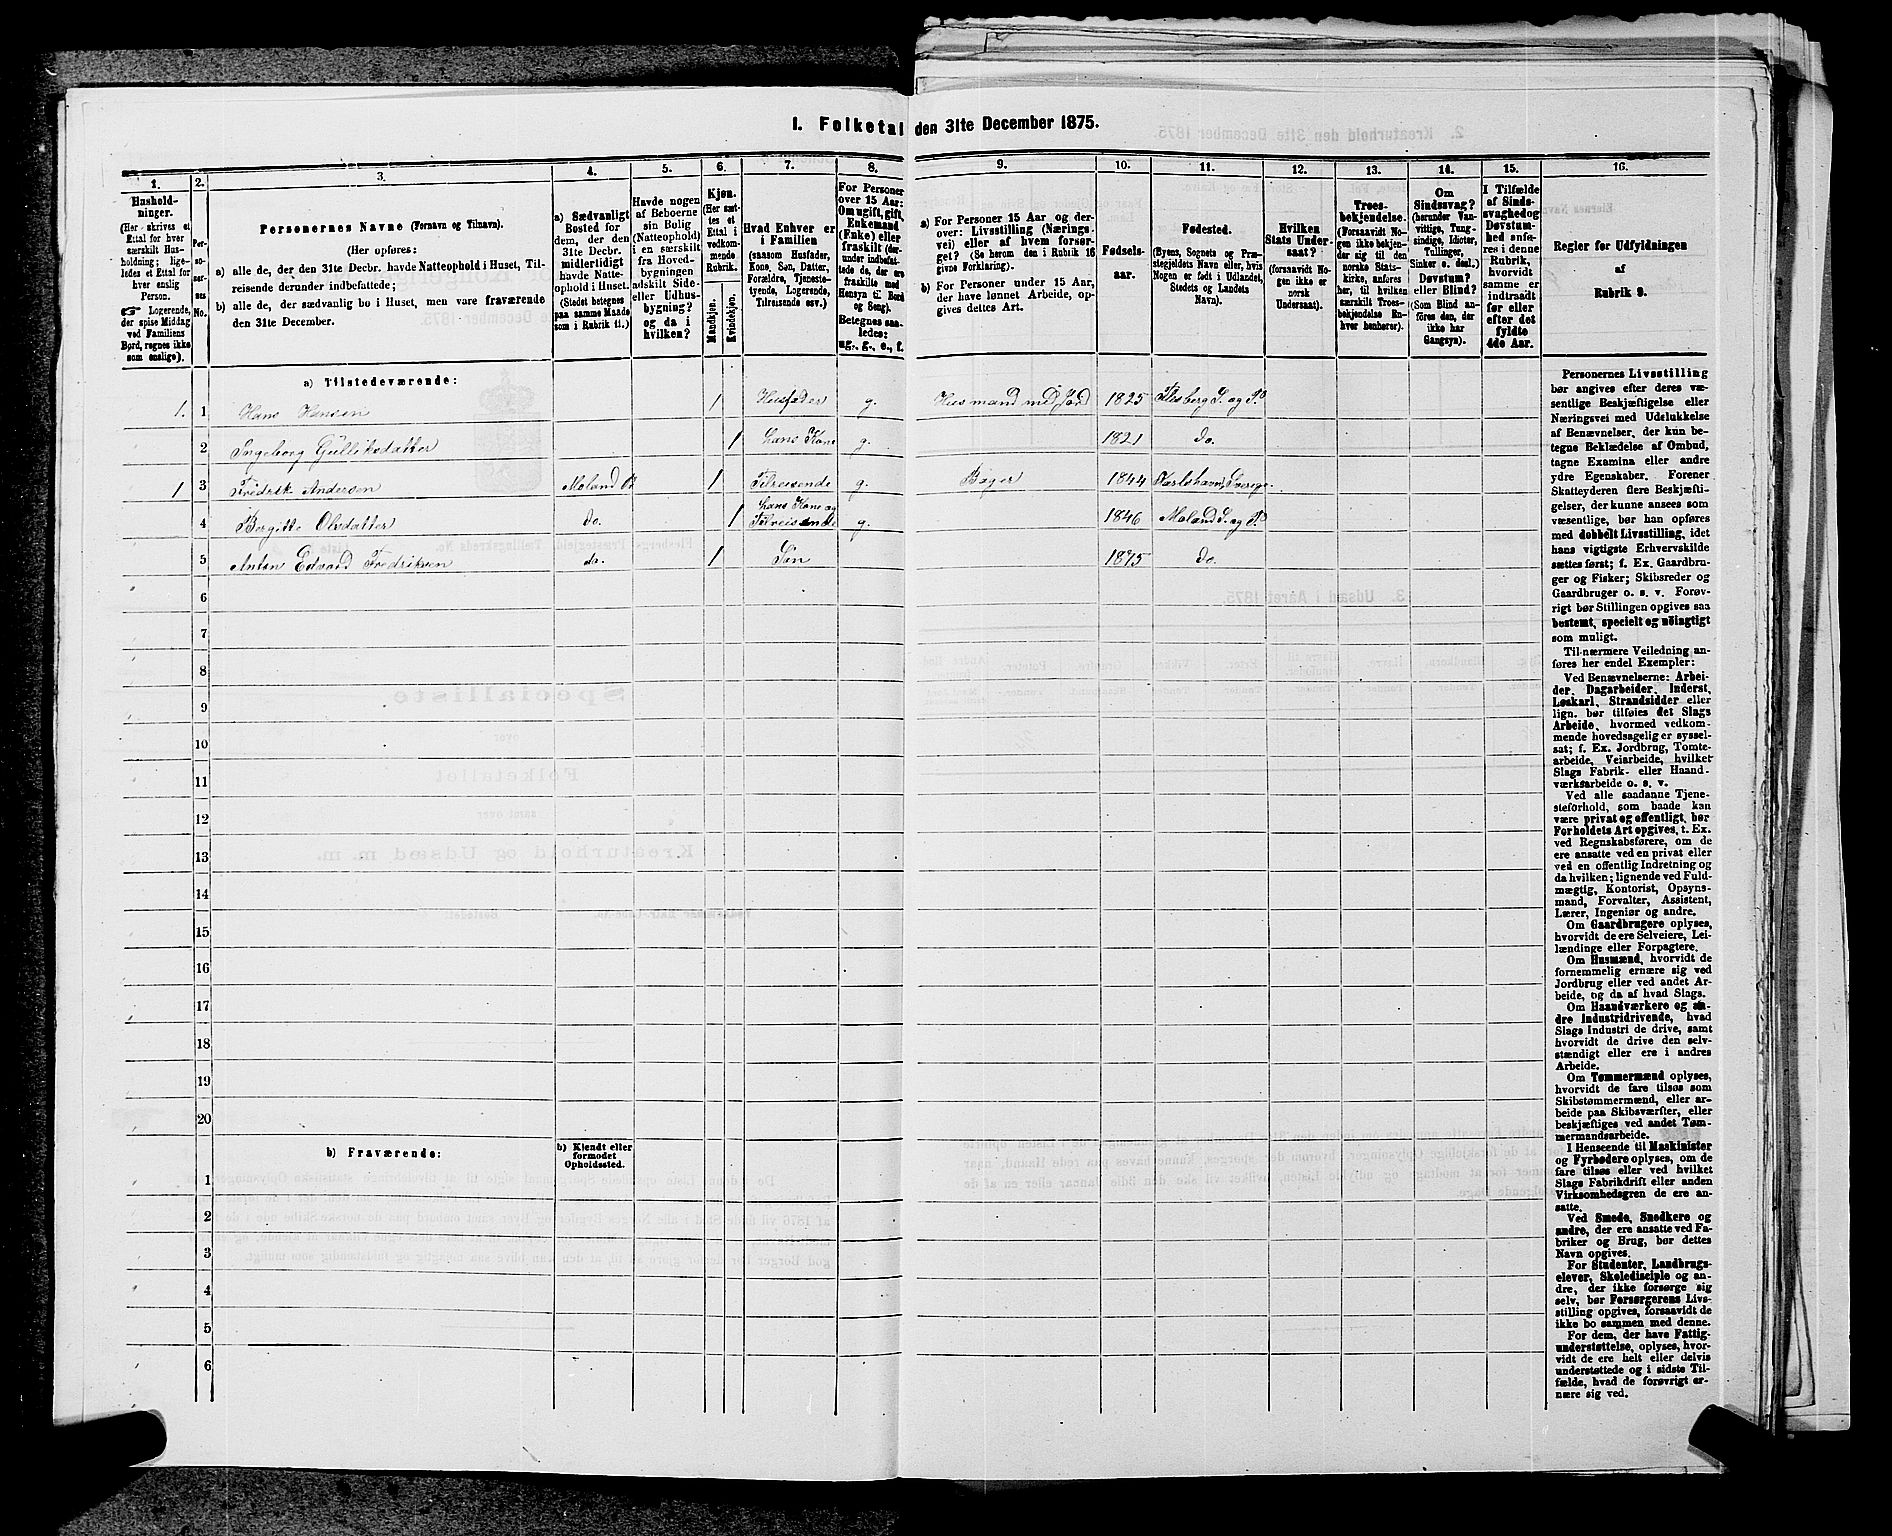 I. Folketal den 31te December 1875.
1.
2.
3.
4.
5.
6.
7.
8.
9.
10.
11.
12.
13.
14.
15.
16.
Hushold-
ninger.
(Her skrives et
Ettal for hver
særskilt Hus-
holdning; lige-
ledes et Ettal for
hver enslig
Person.
☞ Logerende,
der spise Middag
ved Familiens
Bord, regnes ikke
som enslige).
Per-
so-
ner-
nes
No.
Personernes Navne (Fornavn og Tilnavn).
(Her opføres:
a) alle de, der den 31te Decbr. havde Natteophold i Huset, Til-
reisende derunder indbefattede;
b) alle de, der sædvanlig bo i Huset, men vare fraværende
den 31te December.
a) Sædvanligt
Bosted for
dem, der den
31te Decbr.
midlertidigt
havde Natte-
ophold i Huset.
(Stedet betegnes
paa samme Maade
som i Rubrik 11.)
Havde nogen
af Beboerne
sin Bolig
(Natteophold)
i en særskilt
fra Hoved-
bygningen
adskilt Side-
eller Udhus-
bygning?
og da i
hvilken?
Kjøn.
(Her sæt-
tes et
Ettal i
vedkom-
mende
Rubrik.
Mandkjøn.
Kvindekjøn.
Hvad Enhver er
i Familien
(saasom Husfader,
Kone, Søn, Datter,
Forældre, Tjeneste-
tyende, Logerende,
Tilreisende osv.)
For Personer
over 15 Aar:
Om ugift, gift,
Enkemand
(Enke) eller
fraskilt (der-
under indbefat-
tede de, der ere
fraskilte med
Hensyn til Bord
og Seng).
Betegnes saa-
ledes:
ug., g., e., f.
a) For Personer 15 Aar og der-
over: Livsstilling (Nærings-
vei) eller af hvem forsør-
get? (Se herom den i Rubrik 16
givne Forklaring).
b) For Personer under 15 Aar,
der have lønnet Arbeide, op-
gives dettes Art.
Fødsels-
aar.
Fødested.
(Byens, Sognets og Præ-
stegjeldets Navn eller, hvis
Nogen er født i Udlandet,
Stedets og Landets
Navn).
Hvilken
Stats Under-
saat?
(forsaavidt No-
gen ikke er
norsk
Undersaat).
Troes-
bekjendelse.
(Forsaavidt No-
gen ikke bekjen-
der sig til den
norske Stats-
kirke, anføres
her, til hvilken
særskilt Troes-
bekjendelse En-
hver henhører).
Om
Sindssvag?
(herunder Van-
vittige, Tung-
sindige, Idioter,
Tullinger,
Sinker o. desl.)
Døvstum?
eller Blind?
(Som Blind an-
føres den, der
ikke har
Gangsyn).
I Tilfælde
af Sinds-
svaghed og
Døvstum-
hed anfø-
res i denne
Rubrik,
hvorvidt
samme er
indtraadt
før eller
efter det
fyldte
4de Aar.
Regler for Udfyldningen
af
Rubrik 9.
a) Tilstedeværende:
1. 1 Hans Hansen 1 Husfader g. Husmand med Jord 1825 Flesberg S. og P.
2 Ingeborg Gulliksdatter 1 hans Kone g. 1821 do.
1 3 Fredrik Andersen Moland P. 1 Tilreisende g. Bager 1844 Karlshavn, Sverige
4 Bergitte Olsdatter do. 1 hans Kone og Tilreisende g. 1846 Moland S. og P.
5 Anton Edvard Fredriksen do. 1 Søn 1875 do.
6
7
8
9
10
11
12
13
14
15
16
17
18
19
20
b) Fraværende:
b) Kjendt eller
formodet
Opholdssted.
1
2
3
4
5
6
Personernes Livsstilling
bør angives efter deres væ-
sentlige Beskjæftigelse eller
Næringsvei med Udelukkelse
af Benævnelser, der kun be-
tegne Beklædelse af Ombud,
tagne Examina eller andre
ydre Egenskaber. Forener
Skatteyderen flere Beskjæfti-
gelser, der kunne ansees som
væsentlige, bør han opføres
med dobbelt Livsstilling, idet
hans vigtigste Erhvervskilde
sættes først; f. Ex. Gaardbru-
ger og Fisker; Skibsreder og
Gaardbruger o. s. v. Forøv-
rigt bør Stillingen opgives saa
bestemt, specielt og nøiagtigt
som muligt.
Til nærmere Veiledning an-
føres her endel Exempler:
Ved Benævnelserne: Arbei-
der, Dagarbeider, Inderst,
Løskarl, Strandsidder eller
lign. bør tilføies det Slags
Arbeide, hvormed vedkom-
mende hovedsagelig er syssel-
sat; f. Ex. Jordbrug, Tomte-
arbeide, Veiarbeide, hvilket
Slags Fabrik- eller Haand-
værksarbeide o. s. v.
Ved alle saadanne Tjene-
steforhold, som baade kan
være privat og offentligt, bør
Forholdets Art opgives, t. Ex.
ved Regnskabsførere, om de
ere ansatte ved en privat eller
ved en offentlig Indretning og
da hvilken; lignende ved Fuld-
mægtig, Kontorist, Opsyns-
mand, Forvalter, Assistent,
Lærer, Ingeniør og andre.
Om Gaardbrugere oplyses,
hvorvidt de ere Selveiere, Lei-
lændinge eller Forpagtere.
Om Husmænd, hvorvidt de
fornemmelig ernære sig ved
Jordbrug eller ved andet Ar-
beide, og da af hvad Slags.
Om Haandværkere og an-
dre Industridrivende, hvad
Slags Industri de drive, samt
hvorvidt de drive den selv-
stændigt eller ere i andres
Arbeide.
Om Tømmermænd oplyses,
hvorvidt de fare tilsøs som
Skibstømmermænd, eller ar-
beide paa Skibsværfter, eller
beskjæftiges ved andet Tøm-
mermandsarbeide.
I Henseende til Maskinister
og Fyrbødere oplyses, om de
fare tilsøs eller ved hvilket
Slags Fabrikdrift eller anden
Virksomhedsgren de ere an-
satte.
Ved Smede, Snedkere og
andre, der ere ansatte ved Fa-
briker og Brug, bør dettes
Navn opgives.
For Studenter, Landbrugs-
elever, Skoledisciple og an-
dre, der ikke forsørge sig
selv, bør Forsørgerens Livs-
stilling opgives, forsaavidt de
ikke bo sammen med denne.
For dem, der have Fattig-
understøttelse, oplyses, hvor-
vidt de ere helt eller delvis
understøttede og i sidste Til-
fælde, hvad de forøvrigt er-
nære sig ved.